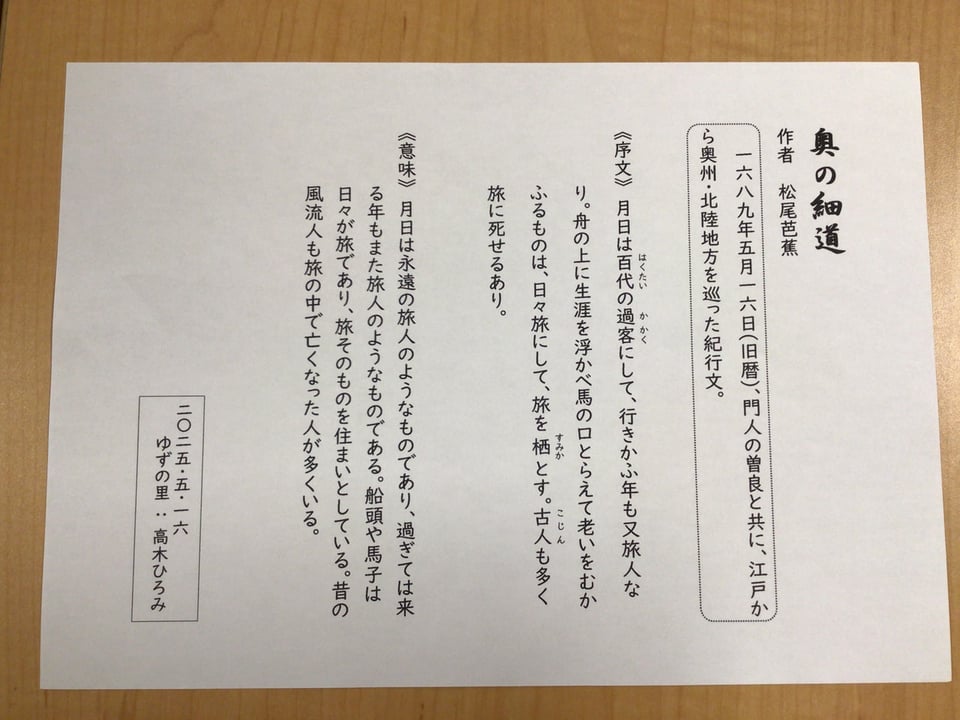 奥の細道
作者　松尾芭蕉
一六八九年五月一六日(旧暦)、門人の曽良と共に、江戸か
ら奥州・北陸地方を巡った紀行文。
《序文》月日は百代の過客にして、行きかふ年も又旅人な
はくたい　かかく
り。舟の上に生涯を浮かべ馬の口とらえて老いをむか
ふるものは、日々旅にして、旅を栖とす。古人も多く
すみか　こじん
旅に死せるあり。
《意味》月日は永遠の旅人のようなものであり、過ぎては来
る年もまた旅人のようなものである。船頭や馬子は
日々が旅であり、旅そのものを住まいとしている。昔の
風流人も旅の中で亡くなった人が多くいる。
二〇二五・五・一六
ゆずの里：高木ひろみ